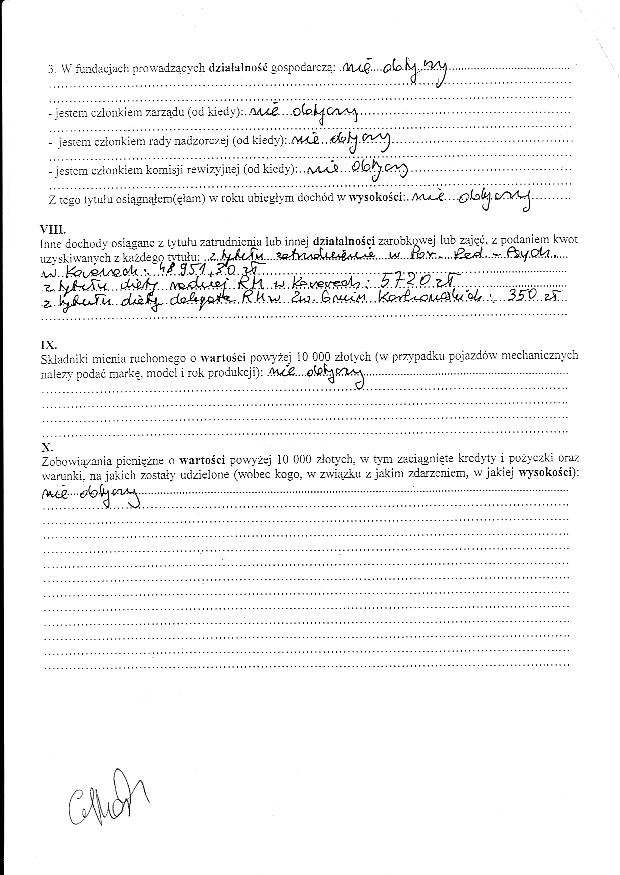 3. W fundacjach prowadzących działalność gospodarczą: nie dotyczy
- jestem członkiem zarządu (od kiedy): nie dotyczy
- jestem członkiem rady nadzorczej (od kiedy): nie dotyczy
- jestem członkiem komisji rewizyjnej (od kiedy): nie dotyczy
Z tego tytułu osiągnąłem(ęłam) w roku ubiegłym dochód w wysokości: nie dotyczy
VIII.
Inne dochody osiągane z tytułu zatrudnienia lub innej działalności zarobkowej lub zajęć, z podaniem kwot
uzyskiwanych z każdego tytułu: z tytułu zatrudnienia w Por. Ped - Psych.
w : 48 951,30 zł
z tytułu diety radnej RM w : 5720 zł
z tytułu diety delegata RM w Zw. Gmin : 350 zł
IX.
Składniki mienia ruchomego o wartości powyżej 10 000 złotych (w przypadku pojazdów mechanicznych
należy podać markę, model i rok produkcji): nie dotyczy
X.
Zobowiązania pieniężne o wartości powyżej 10 000 złotych, w tym zaciągnięte kredyty i pożyczki oraz
warunki, na jakich zostały udzielone (wobec kogo, w związku z jakim zdarzeniem, w jakiej wysokości):
nie dotyczy